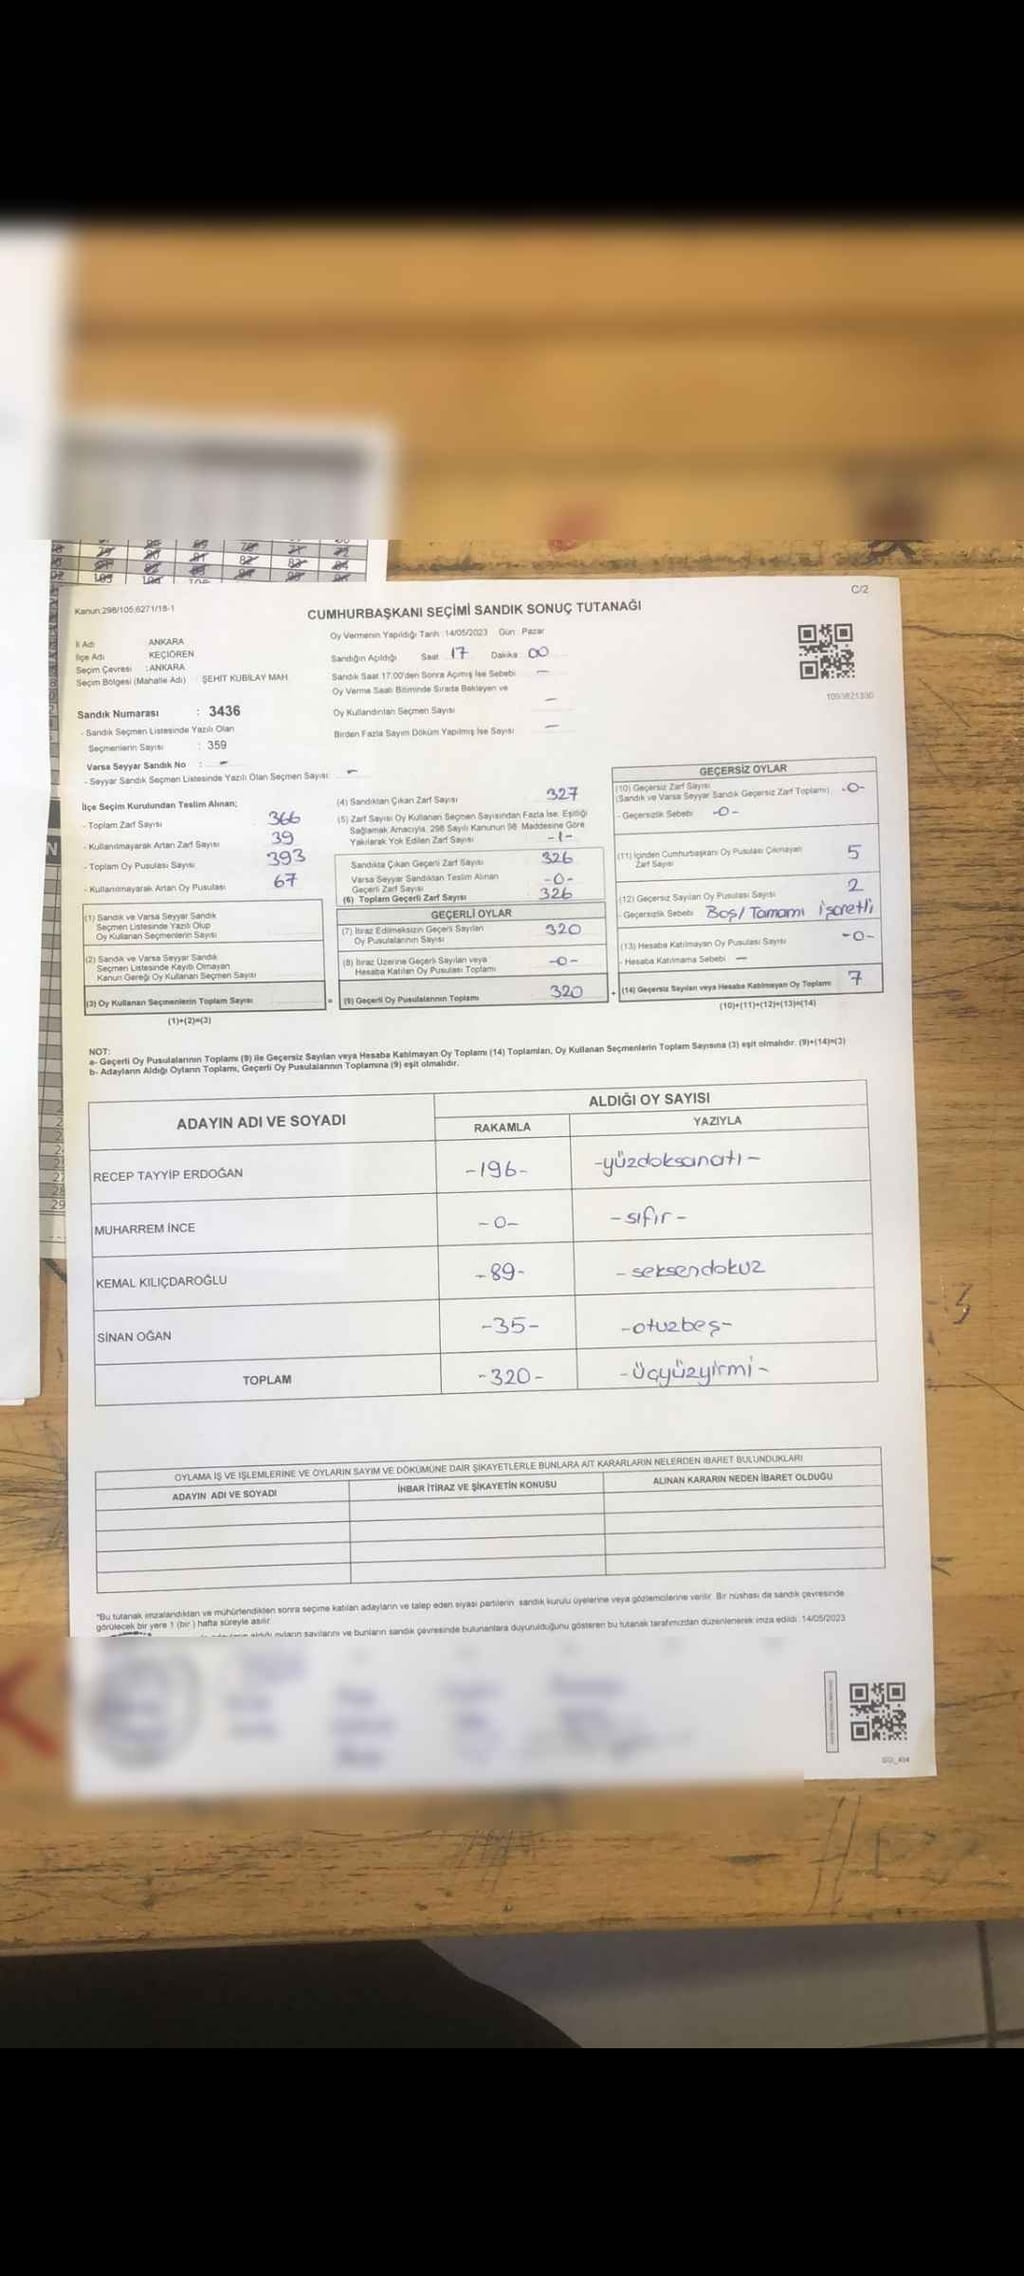 C/2
Kanun:298/105;6271/18-1
CUMHURBAŞKANI SEÇİMİ SANDIK SONUÇ TUTANAĞI
İl Adı ANKARA
İlçe Adı KEÇİÖREN
Seçim Çevresi : ANKARA
Seçim Bölgesi (Mahalle Adı) : ŞEHİT KUBİLAY MAH
Oy Vermenin Yapıldığı Tarih :14/05/2023 Gün : Pazar
Sandığın Açıldığı Saat 17 Dakika 00
Sandık Saat 17:00'den Sonra Açılmış İse Sebebi —
Oy Verme Saati Bitiminde Sırada Bekleyen ve
Oy Kullandırılan Seçmen Sayısı —
Birden Fazla Sayım Döküm Yapılmış İse Sayısı —
Sandık Numarası : 3436
- Sandık Seçmen Listesinde Yazılı Olan
Seçmenlerin Sayısı : 359
Varsa Seyyar Sandık No : -
- Seyyar Sandık Seçmen Listesinde Yazılı Olan Seçmen Sayısı: -
İlçe Seçim Kurulundan Teslim Alınan;
- Toplam Zarf Sayısı 366
- Kullanılmayarak Artan Zarf Sayısı 39
- Toplam Oy Pusulası Sayısı 393
- Kullanılmayarak Artan Oy Pusulası 67
(1) Sandık ve Varsa Seyyar Sandık
Seçmen Listesinde Yazılı Olup
Oy Kullanan Seçmenlerin Sayısı
(2) Sandık ve Varsa Seyyar Sandık
Seçmen Listesinde Kayıtlı Olmayan
Kanun Gereği Oy Kullanan Seçmen Sayısı
(3) Oy Kullanan Seçmenlerin Toplam Sayısı
(1)+(2)=(3)
(4) Sandıktan Çıkan Zarf Sayısı 327
(5) Zarf Sayısı Oy Kullanan Seçmen Sayısından Fazla İse, Eşitliği
Sağlamak Amacıyla, 298 Sayılı Kanunun 98. Maddesine Göre
Yakılarak Yok Edilen Zarf Sayısı -1-
Sandıkta Çıkan Geçerli Zarf Sayısı 326
Varsa Seyyar Sandıktan Teslim Alınan
Geçerli Zarf Sayısı -0-
(6) Toplam Geçerli Zarf Sayısı 326
GEÇERLİ OYLAR
(7) İtiraz Edilmeksizin Geçerli Sayılan
Oy Pusulalarının Sayısı 320
(8) İtiraz Üzerine Geçerli Sayılan veya
Hesaba Katılan Oy Pusulası Toplamı -0-
= (9) Geçerli Oy Pusulalarının Toplamı 320
GEÇERSİZ OYLAR
(10) Geçersiz Zarf Sayısı
(Sandık ve Varsa Seyyar Sandık Geçersiz Zarf Toplamı) -0-
- Geçersizlik Sebebi -0-
(11) İçinden Cumhurbaşkanı Oy Pusulası Çıkmayan
Zarf Sayısı 5
(12) Geçersiz Sayılan Oy Pusulası Sayısı 2
- Geçersizlik Sebebi Boş/ Tamamı işaretli
(13) Hesaba Katılmayan Oy Pusulası Sayısı -0-
- Hesaba Katılmama Sebebi —
+ (14) Geçersiz Sayılan veya Hesaba Katılmayan Oy Toplamı 7
(10)+(11)+(12)+(13)=(14)
NOT:
a- Geçerli Oy Pusulalarının Toplamı (9) ile Geçersiz Sayılan veya Hesaba Katılmayan Oy Toplamı (14) Toplamları, Oy Kullanan Seçmenlerin Toplam Sayısına (3) eşit olmalıdır. (9)+(14)=(3)
b- Adayların Aldığı Oyların Toplamı, Geçerli Oy Pusulalarının Toplamına (9) eşit olmalıdır.
ADAYIN ADI VE SOYADI ALDIĞI OY SAYISI
RAKAMLA YAZIYLA
RECEP TAYYİP ERDOĞAN -196- -yüzdoksanaltı-
MUHARREM İNCE -0- -sıfır-
KEMAL KILIÇDAROĞLU -89- -seksendokuz
SİNAN OĞAN -35- -otuzbeş-
TOPLAM -320- -üçyüzyirmi-
OYLAMA İŞ VE İŞLEMLERİNE VE OYLARIN SAYIM VE DÖKÜMÜNE DAİR ŞİKAYETLERLE BUNLARA AİT KARARLARIN NELERDEN İBARET BULUNDUKLARI
ADAYIN ADI VE SOYADI İHBAR İTİRAZ VE ŞİKAYETİN KONUSU ALINAN KARARIN NEDEN İBARET OLDUĞU
*Bu tutanak imzalandıktan ve mühürlendikten sonra seçime katılan adayların ve talep eden siyasi partilerin sandık kurulu üyelerine veya gözlemcilerine verilir. Bir nüshası da sandık çevresinde
görülecek bir yere 1 (bir ) hafta süreyle asılır.
oyların sayılarını ve bunların sandık çevresinde bulunanlara duyurulduğunu gösteren bu tutanak tarafımızdan düzenlenerek imza edildi. 14/05/2023